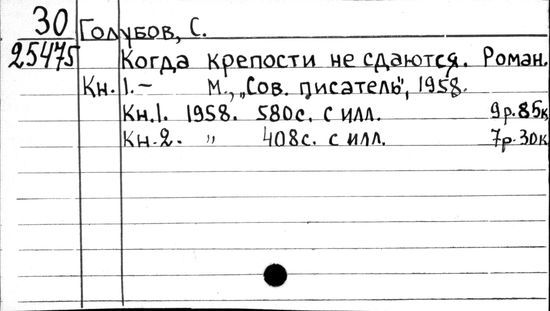 30
25475
Голубов, С.
Когда крепости не сдаются. Роман.
Кн. 1.– М., „Сов. писатель", 1958.
Кн.1. 1958. 580с. с илл. 9р.85к
Кн.2. „ 408с. с илл. 7р.30к